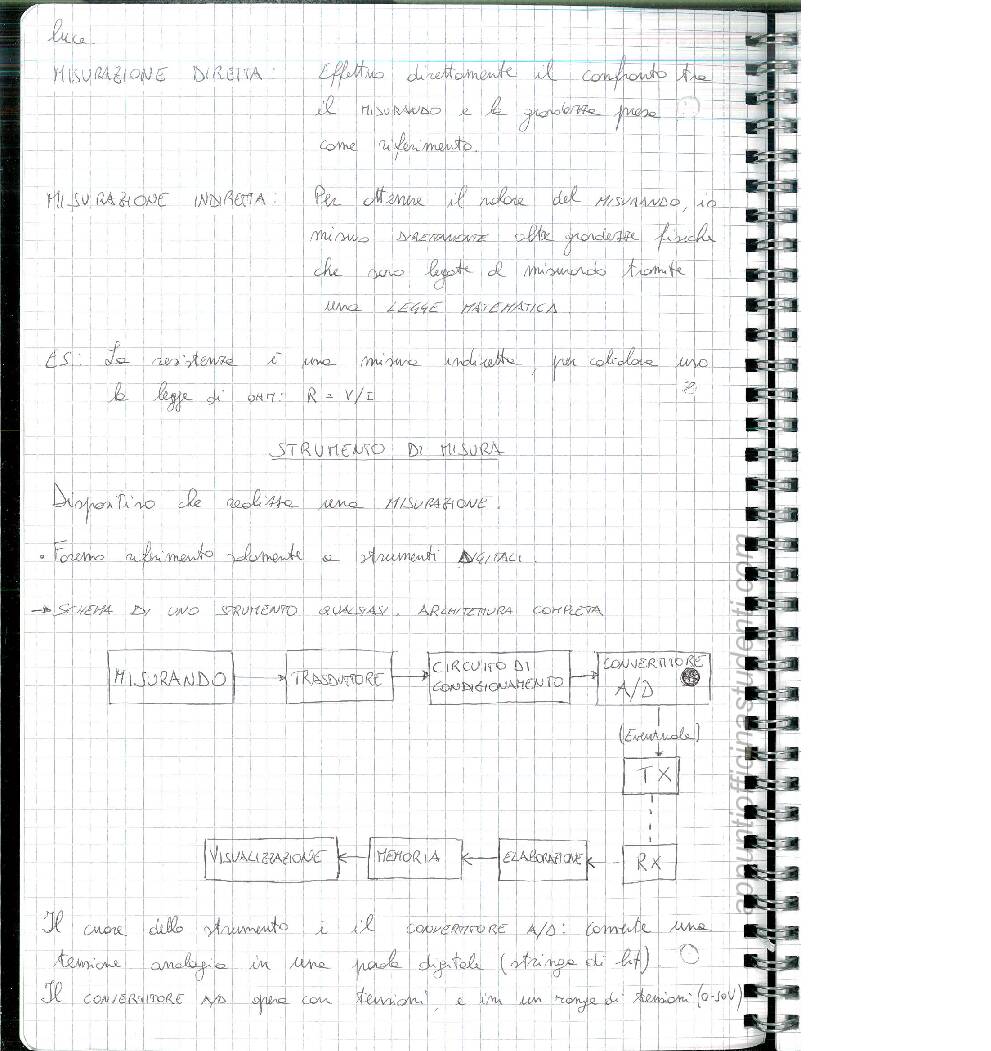 luce.
MISURAZIONE DIRETTA: Effettuo direttamente il confronto tra
il MISURANDO e la grandezza presa
come riferimento.
MISURAZIONE INDIRETTA: Per ottenere il valore del MISURANDO, io
misuro DIRETTAMENTE altre grandezze fisiche
che sono legate al misurando tramite
una LEGGE MATEMATICA
ES: La resistenza è una misura indiretta, per calcolare uso
la legge di OHM: R = V/I
STRUMENTO DI MISURA
Dispositivo che realizza una MISURAZIONE.
• Faremo riferimento solamente a strumenti DIGITALI.
→ SCHEMA DI UNO STRUMENTO QUALSIASI. ARCHITETTURA COMPLETA
MISURANDO TRASDUTTORE CIRCUITO DI CONVERTITORE
CONDIZIONAMENTO A/D
(Eventuale)
TX
VISUALIZZAZIONE MEMORIA ELABORAZIONE RX
Il cuore dello strumento è il CONVERTITORE A/D: converte una
tensione analogia in una parola digitale (stringa di bit)
Il CONVERTITORE A/D opera con tensioni, e in un range di tensioni (0-10V)
appuntiofficinastudenti.com